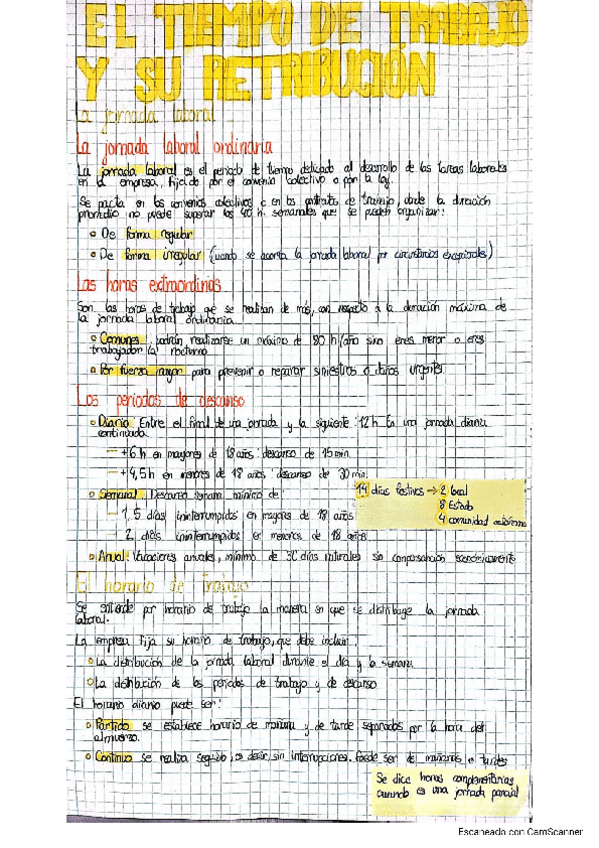 EL TIEMPO DE TRABAJO
Y SU RETRIBUCIÓN
La jornada laboral
La jornada laboral ordinaria
La jornada laboral es el periodo de tiempo dedicado al desarrollo de las tareas laborales
en la empresa, fijado por el convenio colectivo o por la ley.
Se pacta en los convenios colectivos o en los contratos de trabajo, donde la duración
promedio no puede superar las 40 h. semanales que se pueden organizar:
De forma regular
De forma irregular (cuando se acorta la jornada laboral por circunstancias excepcionales)
Las horas extraordinarias
Son las horas de trabajo que se realizan de más, con respecto a la duración máxima de
la jornada laboral ordinaria.
Comunes, podrán realizarse un máximo de 80 h/año sino eres menor o eres
trabajador/a nocturno
Por fuerza mayor para prevenir o reparar siniestros o daños urgentes
Los periodos de descanso
Diario Entre el final de una jornada y la siguiente: 12 h En una jornada diaria
continuada.
+6 h en mayores de 18 años: descanso de 15 min.
+4,5 h en menores de 18 años: descanso de 30 min.
14 días festivos → 2 local
8 Estado
4 comunidad autónoma
Semanal. Descanso semanal mínimo de:
1,5 días ininterrumpidos en mayores de 18 años
2 días ininterrumpidos en menores de 18 años
Anual: Vacaciones anuales, mínimo de 30 días naturales sin compensación económicamente
El horario de Trabajo
Se entiende por horario de trabajo la manera en que se distribuye la jornada
laboral.
La empresa fija su horario de trabajo, que debe incluir:
La distribución de la jornada laboral durante el día y la semana
La distribución de los periodos de trabajo y de descanso
El horario diario puede ser:
Partido se establece horario de mañana y de tarde separados por la hora del
almuerzo.
Continuo se realiza seguido, es decir, sin interrupciones. Puede ser de mañanas o tardes
Se dice horas complementarias
cuando es una jornada parcial
Escaneado con CamScanner